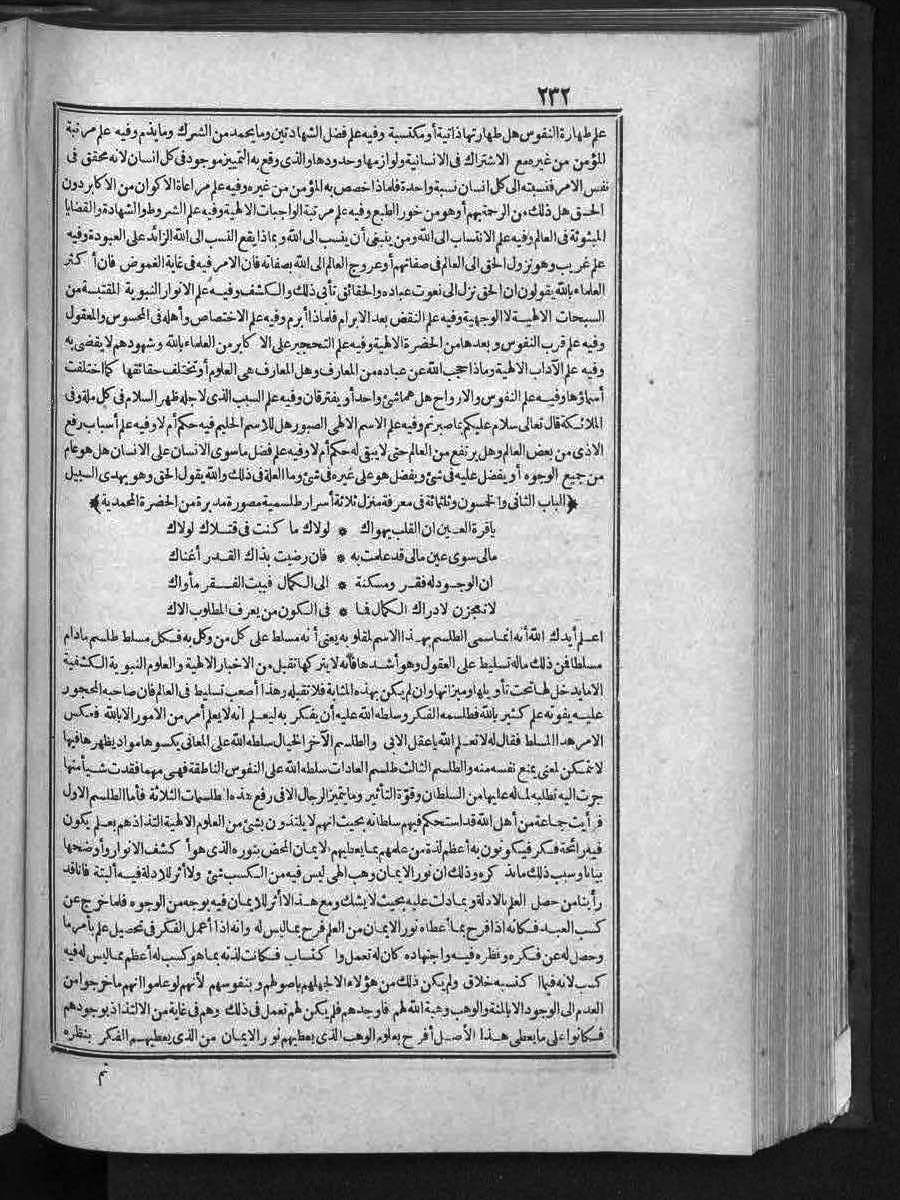 ٢٣٢
علم طهارة النفوس هل طهارتها ذاتية أو مكتسبة وفيه علم فضل الشهادتين وما يحمد من الشرك وما يذم وفيه علم مرتبة
المؤمن من غيره مع الاشتراك فى الانسانية ولوازمها وحدودها والذى وقع به التمييز موجود فى كل انسان لانه محقق فى
نفس الامر فنسبته الى كل انسان نسبة واحدة فلماذا خصص به المؤمن من غيره وفيه علم مراعاة الاكوان من الاكابر دون
الحق هل ذلك من الرحمة بهم أو هو من خور الطبع وفيه علم مرتبة الواجبات الالهية وفيه علم الشروط والشهادة والقضايا
المبثوثة فى العالم وفيه علم الانتساب الى الله ومن ينبغى أن ينسب الى الله وبماذا يقع النسب الى الله الزائد على العبودة وفيه
علم غريب وهو نزول الحق الى العالم فى صفاتهم أو عروج العالم الى الله بصفاته فان الامر فيه فى غاية الغموض فان أكثر
العلماء بالله يقولون ان الحق نزل الى نعوت عباده والحقائق تأبى ذلك والكشف وفيه علم الانوار النبوية المقتبسة من
السبحات الالهية لا الوجهية وفيه علم النقض بعد الابرام فلماذا أبرم وفيه علم الاختصاص وأهله فى المحسوس والمعقول
وفيه علم قرب النفوس وبعدها من الحضرة الالهية وفيه علم التحجير على الاكابر من العلماء بالله وشهودهم لا يقضى به
وفيه علم الآداب الالهية وماذا حجب الله عن عباده من المعارف وهل المعارف هى العلوم أو تختلف حقائقها كما اختلفت
أسماؤها وفيه علم النفوس والارواح هل هما شئ واحد أو يفترقان وفيه علم السبب الذى لاجله ظهر السلام فى كل ملة وفى
الملائكة قال تعالى سلام عليكم بما صبرتم وفيه علم الاسم الالهى الصبور هل للاسم الحليم فيه حكم أم لا وفيه علم أسباب رفع
الاذى من بعض العالم وهل يرتفع من العالم حتى لا يبقى له حكم أم لا وفيه علم فضل ما سوى الانسان على الانسان هل هو عام
من جميع الوجوه أو يفضل عليه فى شئ ويفضل هو على غيره فى شئ وما العلة فى ذلك والله يقول الحق وهو يهدى السبيل
﴿الباب الثانى والخمسون وثلثمائة فى معرفة منزل ثلاثة أسرار طلسمية مصورة مدبرة من الحضرة المحمدية﴾
ياقرة العين ان القلب يهواك * لولاك ما كنت فى قتلاك لولاك
مالى سوى عين مالى قد علمت به * فان رضيت بذاك القدر أغناك
ان الوجود له فقر ومسكنة * الى الكمال فبيت الفقر مأواك
لا تعجزن لادراك الكمال فما * فى الكون من يعرف المطلوب الاك
اعلم أيدك الله أنه انما سمى الطلسم بهذا الاسم لمقلوبه يعنى أنه مسلط على كل من وكل به فكل مسلط طلسم مادام
مسلطا فمن ذلك ماله تسليط على العقول وهو أشدها فانه لا يتركها تقبل من الاخبار الالهية والعلوم النبوية الكشفية
الا ما يدخل لها تحت تأويلها وميزانها وان لم يكن بهذه المثابة فلا تقبله وهذا أصعب تسليط فى العالم فان صاحبه المحجور
عليه يفوته علم كثير بالله فطلسمه الفكر وسلطه الله عليه أن يفكر به ليعلم انه لا يعلم أمر من الامور الا بالله فعكس
الامر هذا المسلط فقال له لا تعلم الله يا عقل الا بى والطلسم الآخر الخيال سلطه الله على المعانى يكسوها مواد يظهرها فيها
لا تتمكن لمعنى يمنع نفسه منه والطلسم الثالث طلسم العادات سلطه الله على النفوس الناطقة فهى مهما فقدت شيأ منها
جرت اليه تطلبه لما له عليها من السلطان وقوة التأثير وما يتميز الرجال الا فى رفع هذه الطلسمات الثلاثة فأما الطلسم الاول
فرأيت جماعة من أهل الله قد استحكم فيهم سلطانه بحيث انهم لا يلتذون بشئ من العلوم الالهية التذاذهم بعلم يكون
فيه رائحة فكر فيكونون به أعظم لذة من علمهم بما يعطيهم الايمان المحض بنوره الذى هو أكشف الانوار وأوضحها
بيانا وسبب ذلك ما نذكره وذلك ان نور الايمان وهب الهى ليس فيه من الكسب شئ ولا أثر للادلة فيه ألبتة فانا قد
رأينا من حصل العلم بالادلة وبما دلت عليه بحيث لا يشك ومع هذا لا أثر للايمان فيه بوجه من الوجوه فلما خرج عن
كسب العبد فكانه اذا فرح بما أعطاه نور الايمان من العلم فرح بما ليس له وانه اذا أعمل الفكر فى تحصيل علم بأمر ما
وحصل له عن فكره ونظره فيه واجتهاده كان له تعمل واكتساب فكانت لذته بما هو كسب له أعظم مما ليس له فيه
كسب لانه فيما اكتسبه خلاق ولم يكن ذلك من هؤلاء الا لجهلهم باصولهم وبنفوسهم لأنهم لو علموا انهم ما خرجوا من
العدم الى الوجود الا بالمنة والوهب وهبة الله لهم فاوجدهم فلم يكن لهم تعمل فى ذلك وهم فى غاية من الالتذاذ بوجودهم
فكانوا على ما يعطى هذا الأصل أفرح بعلوم الوهب الذى يعطيهم نور الايمان من الذى يعطيهم الفكر بنظره